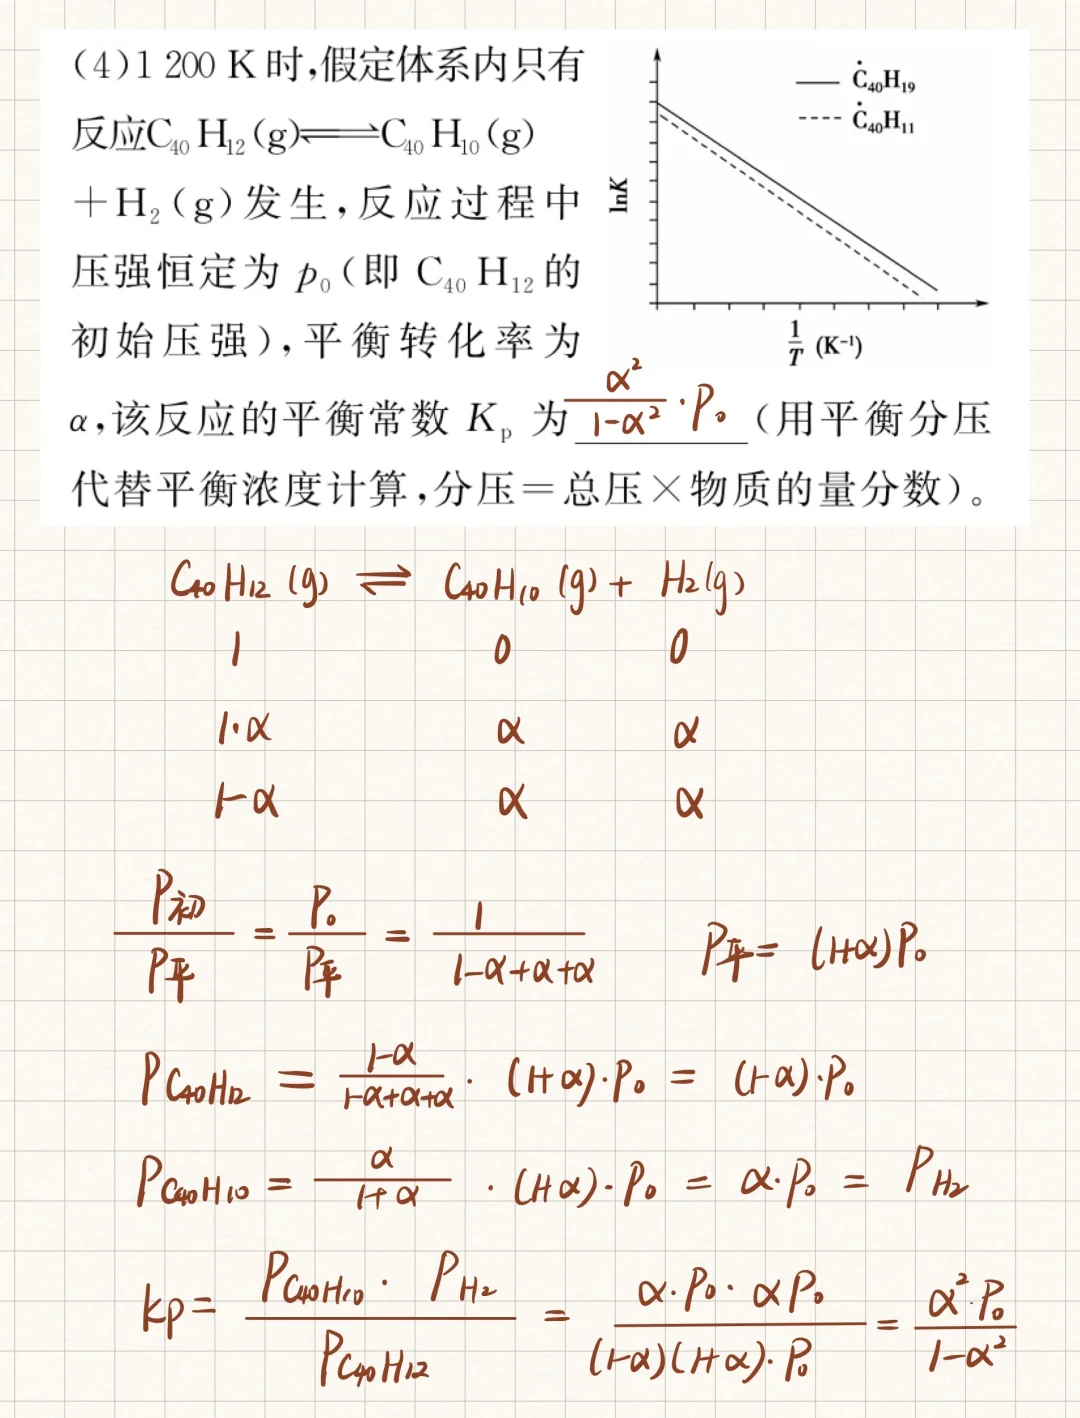 (4)1 200 K时,假定体系内只有
反应C₄₀H₁₂(g)⇌C₄₀H₁₀(g)
+H₂(g)发生,反应过程中
压强恒定为p₀(即C₄₀H₁₂的
初始压强),平衡转化率为
α,该反应的平衡常数Kₚ为 α²/(1-α²)·P₀ (用平衡分压
代替平衡浓度计算,分压=总压×物质的量分数)。
Ċ₄₀H₁₉
Ċ₄₀H₁₁
lnK
1/T (K⁻¹)
C₄₀H₁₂(g) ⇌ C₄₀H₁₀(g) + H₂(g)
1 0 0
1·α α α
1-α α α
P初/P平 = P₀/P平 = 1/(1-α+α+α) P平 = (1+α)P₀
P C₄₀H₁₂ = (1-α)/(1-α+α+α) · (1+α)·P₀ = (1-α)·P₀
P C₄₀H₁₀ = α/(1+α) · (1+α)·P₀ = α·P₀ = P H₂
kp = (P C₄₀H₁₀ · P H₂)/(P C₄₀H₁₂) = (α·P₀·αP₀)/((1-α)(1+α)·P₀) = (α²·P₀)/(1-α²)